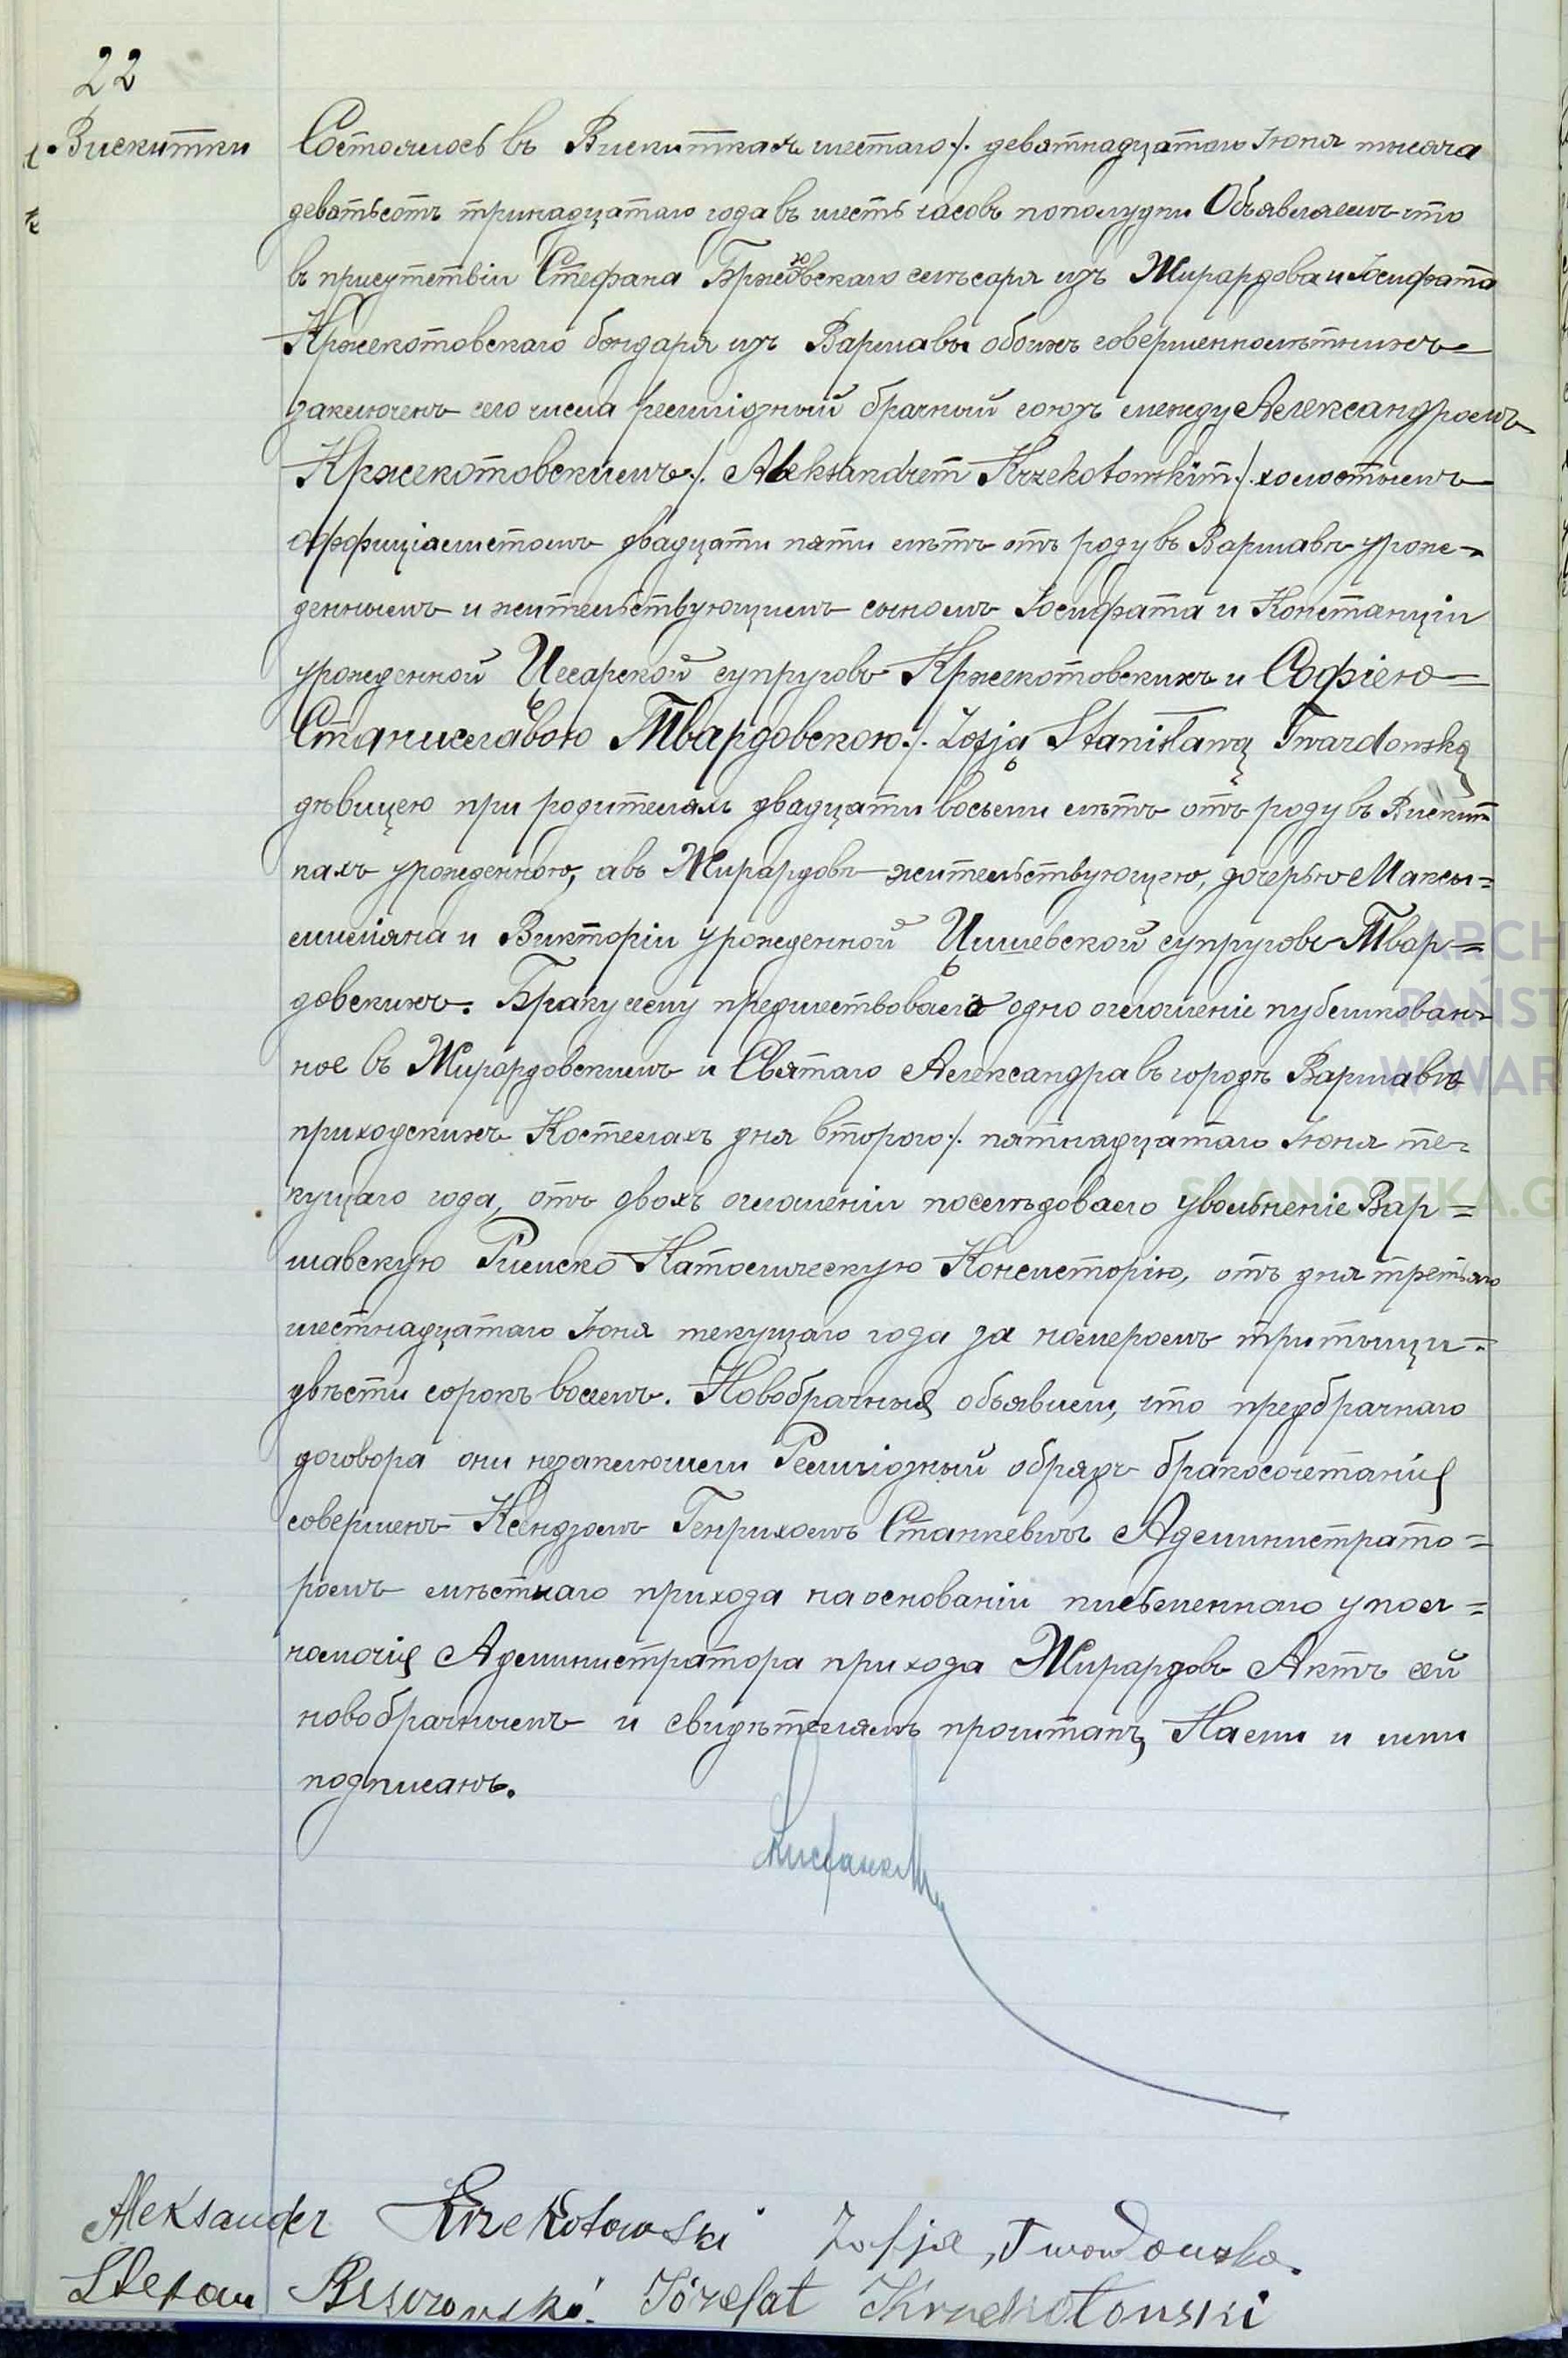 22
Вискитки
Состоялось въ Вискиткахъ шестаго /. девятнадцатаго Іюня тысяча
девятьсотъ тринадцатаго года въ шесть часовъ пополудни Объявляемъ что
въ присутствіи Стефана Бржозовскаго слѣсаря изъ Жирардова и Іосифата
Кржекотовскаго бондаря изъ Варшавы обоихъ совершеннолѣтнихъ
заключенъ сего числа религіозный брачный союзъ между Александромъ
Кржекотовскимъ /. Aleksandrem Krzekotowskim /. холостымъ
оффиціалистомъ двадцати пяти лѣтъ отъ роду въ Варшавѣ урож-
деннымъ и жительствующимъ сыномъ Іосифата и Констанціи
урожденной Цесарской супруговъ Кржекотовскихъ и Софіею =
Станиславою Твардовскою /. Zofją Stanisławą Twardowską
дѣвицею при родителяхъ двадцати восьми лѣтъ отъ роду въ Вискит
кахъ урожденною, а въ Жирардовѣ жительствующею, дочерью Максы=
миліяна и Викторіи урожденной Цишевской супруговъ Твар=
довскихъ. Браку сему предшествовало одно оглошеніе публикован-
ное въ Жирардовскимъ и Святаго Александра въ городѣ Варшавѣ
приходскихъ Костелахъ дня второго /. пятнадцатаго Іюня те=
кущаго года, отъ двохъ оглошеніи послѣдовало увольненіе Вар=
шавскую Римско Католическую Консисторію, отъ дня третьяго
шестнадцатаго Іюня текущаго года за номеромъ три тысци=
двѣсти сорокъ восемъ. Новобрачныя объявили, что предбрачнаго
договора они незаключили Религіозный обрядъ бракосочетанія
совершенъ Ксендзомъ Генрихомъ Станкевичъ Администрато=
ромъ мѣстнаго прихода на основаніи письменнаго упол=
номочія Администратора прихода Жирардовъ Актъ сей
новобрачнымъ и свидѣтелямъ прочитанъ, Нами и ими
подписанъ.
Aleksander Krzekotowski Zofja Twardowska.
Stefan Brzozowski. Józefat Krzekotowski
ARCH
PAŃST
W WAR
SKANOTEKA.G